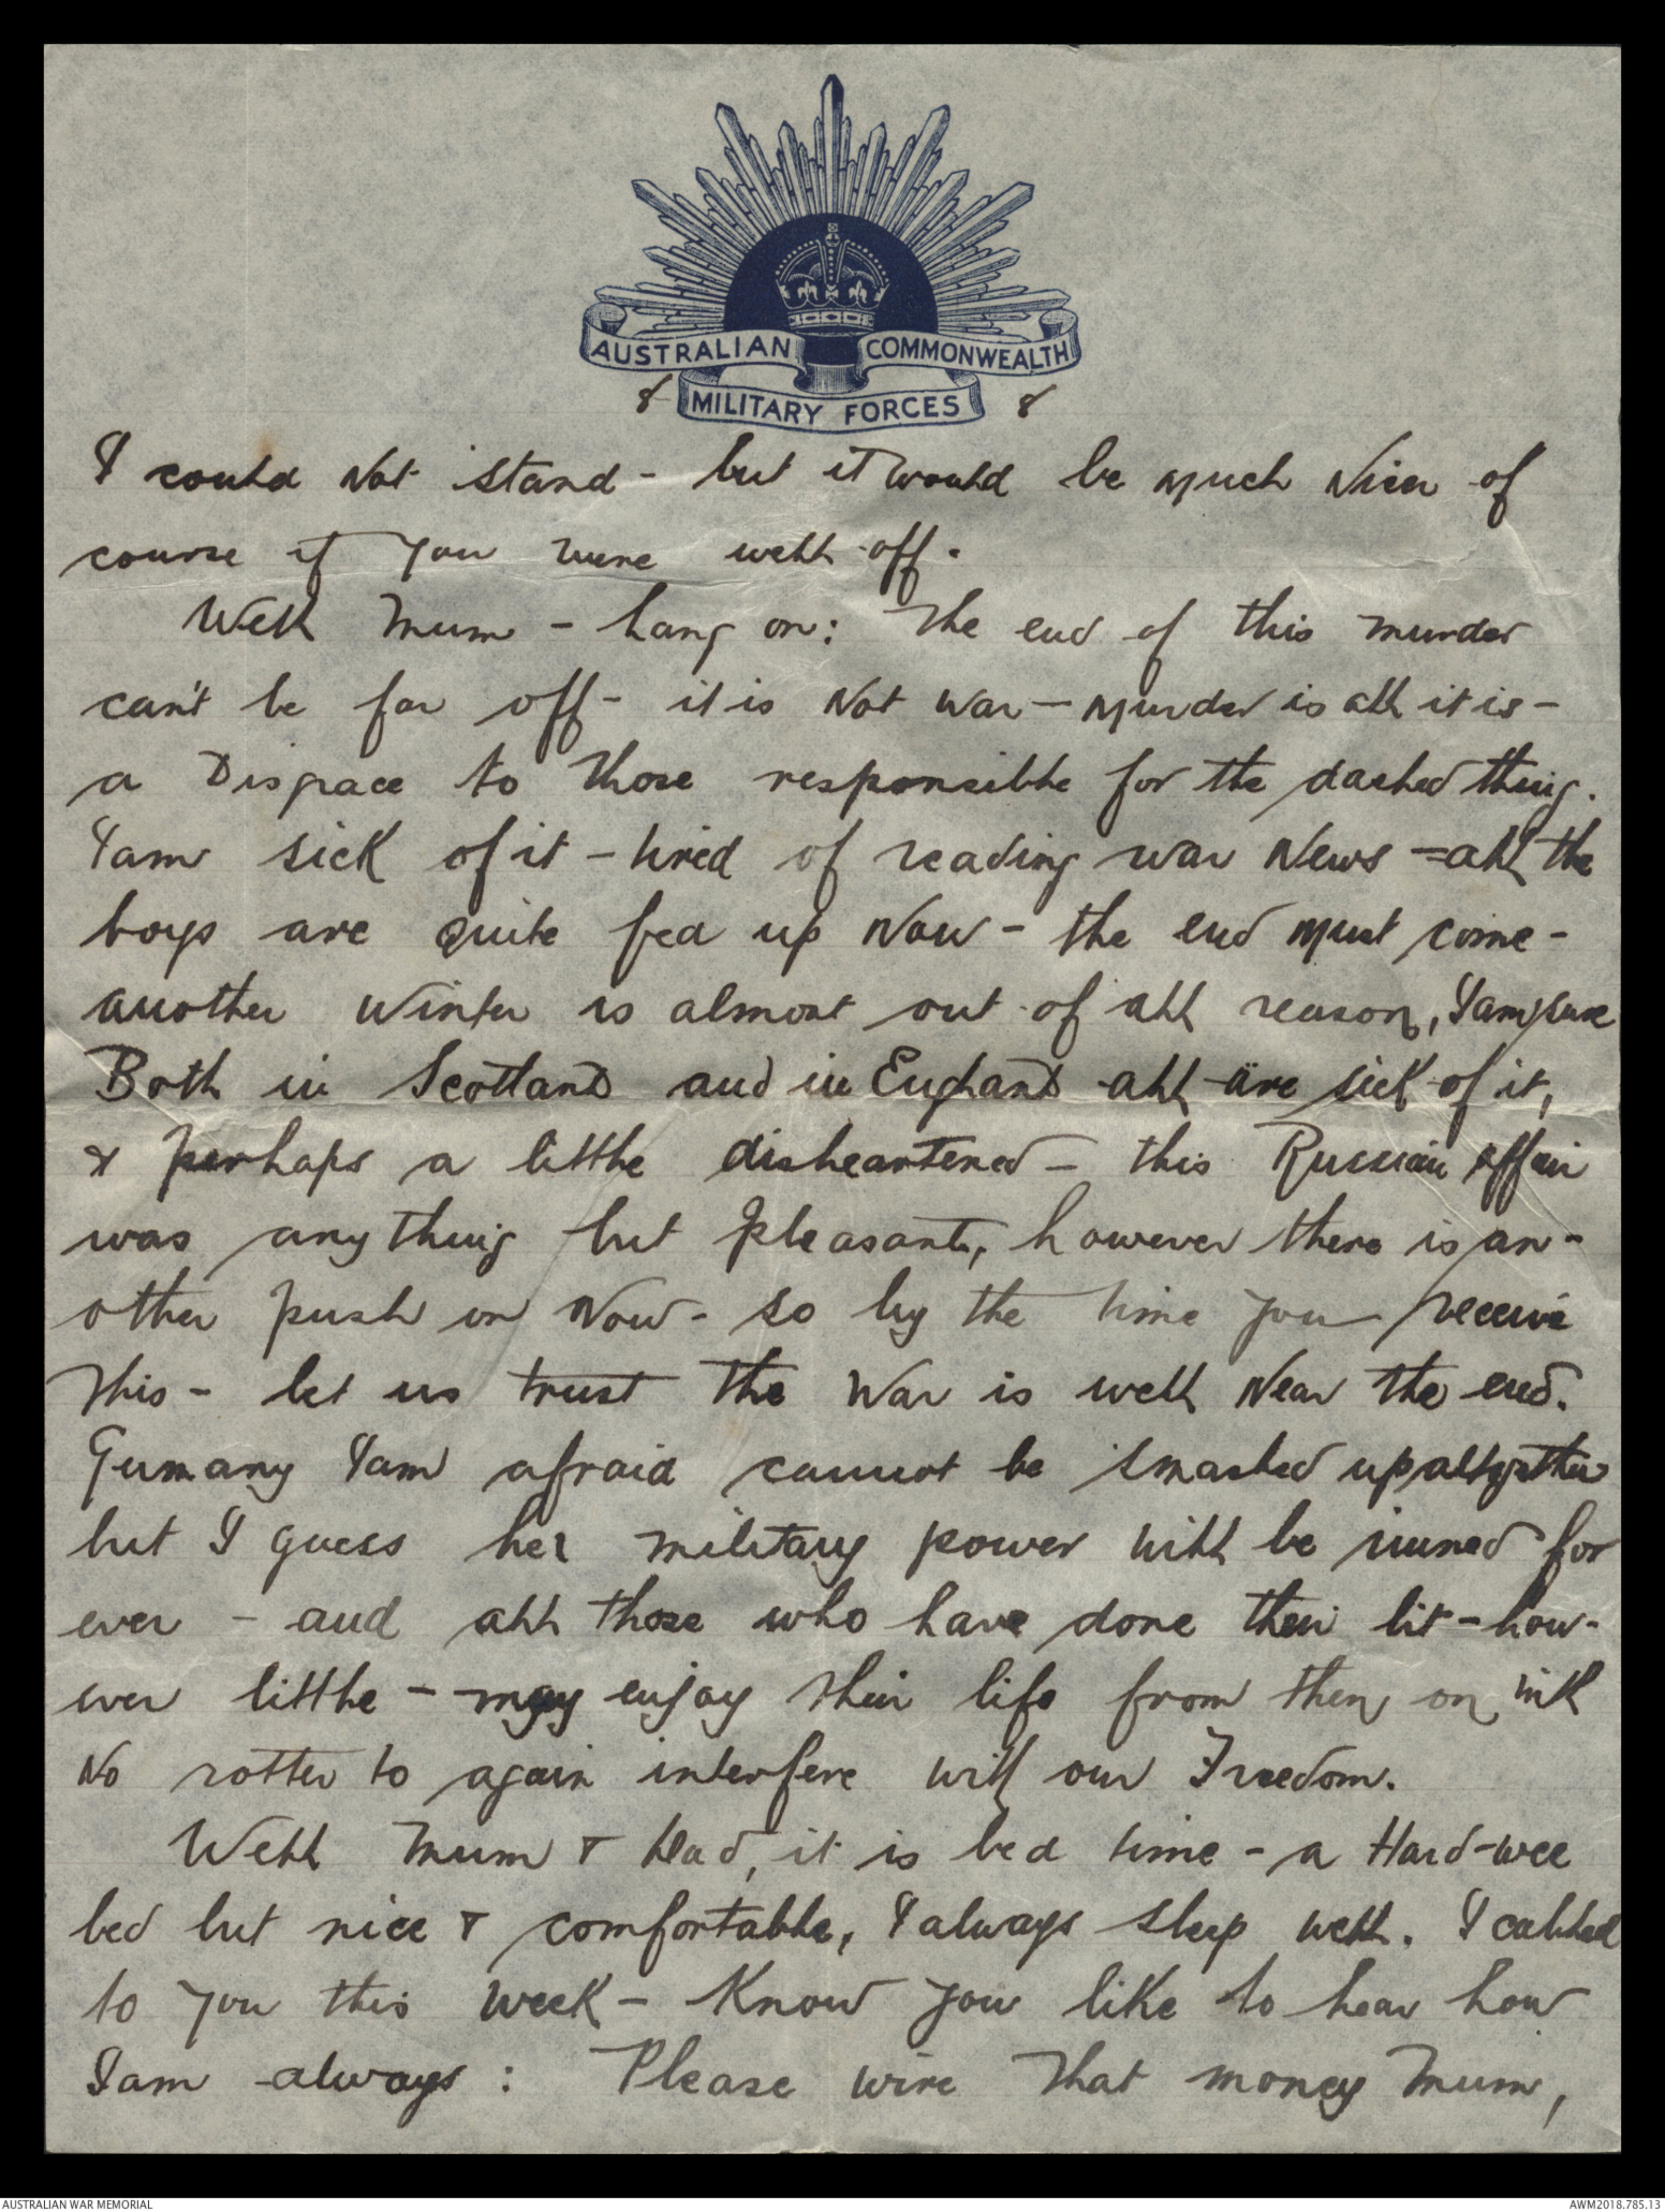 AUSTRALIAN COMMONWEALTH
8 MILITARY FORCES 8
I could Not stand - but it would be much Nicer of
course if you were well off.
Well Mum - hang on: The end of this murder
can't be far off - it is Not War - murder is all it is -
a Disgrace to those responsible for the dashed thing.
I am sick of it - tired of reading war News = all the
boys are quite fed up Now - the end must come -
another Winter is almost out of all reason, I am sure
Both in Scotland and in England all are sick of it,
& perhaps a little disheartened - this Russian affair
was anything but pleasant, however there is an-
other push on Now - so by the time you receive
this - let us trust the War is well Near the end.
Germany I am afraid cannot be smashed up altogether
but I guess her military power will be ruined for
ever - and all those who have done their bit - how-
ever little - may enjoy their life from then on with
No rotter to again interfere with our Freedom.
Well Mum & Dad, it is bed time - a Hard-wee
bed but nice & comfortable, I always sleep well. I cabled
to you this week - Know you like to hear how
I am always: Please wire that money Mum,
AUSTRALIAN WAR MEMORIAL
AWM2018.785.13